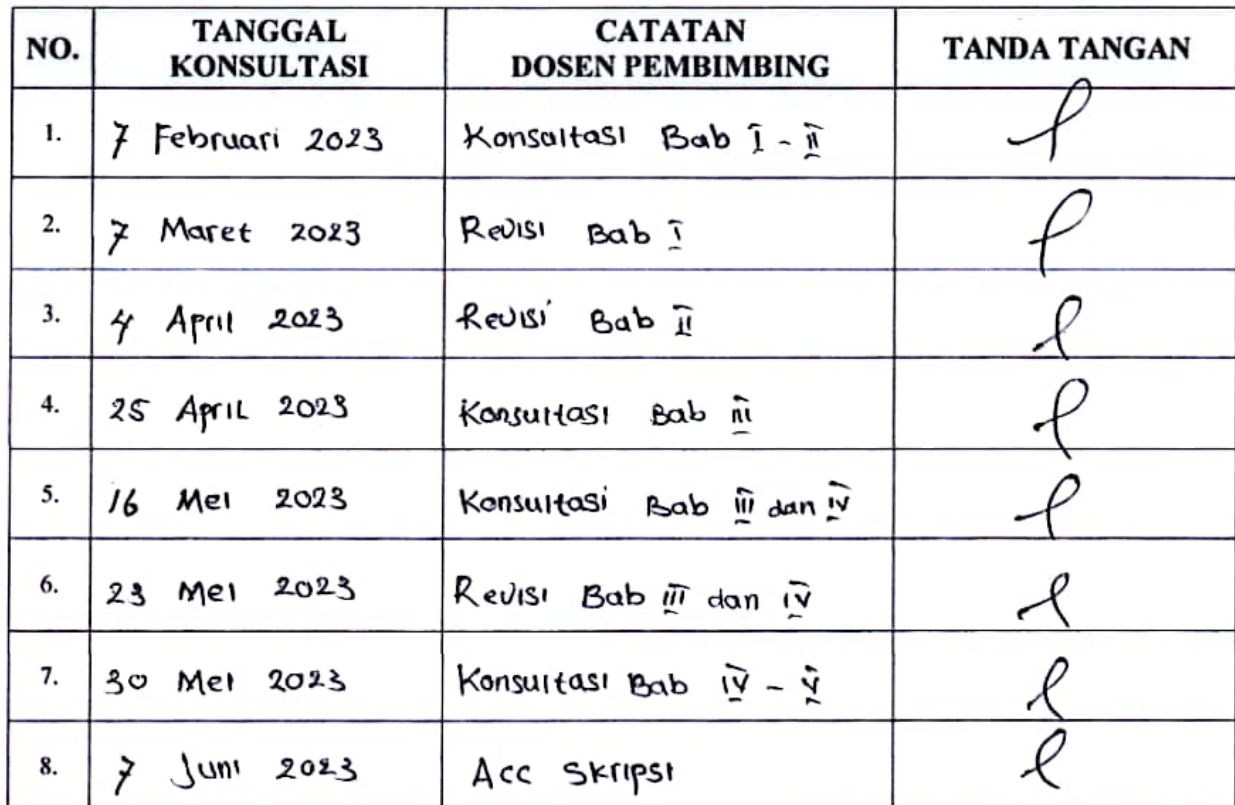 NO. TANGGAL KONSULTASI CATATAN DOSEN PEMBIMBING TANDA TANGAN
1. 7 Februari 2023 Konsultasi Bab I - II
2. 7 Maret 2023 Revisi Bab I
3. 4 April 2023 Revisi Bab II
4. 25 April 2023 Konsultasi Bab III
5. 16 Mei 2023 Konsultasi Bab III dan IV
6. 23 Mei 2023 Revisi Bab III dan IV
7. 30 Mei 2023 Konsultasi Bab IV - V
8. 7 Juni 2023 Acc Skripsi